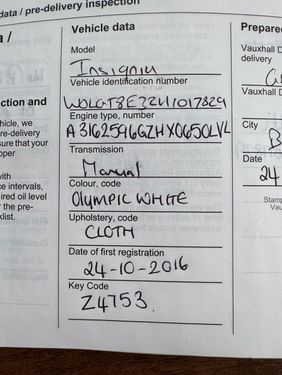 data / pre-delivery inspection
Vehicle data
Model
Insignia
Vehicle identification number
W0LGT8EZZH1017829
Engine type, number
A3162596GZHY0650LVL
Transmission
Manual
Colour, code
OLYMPIC WHITE
Upholstery, code
CLOTH
Date of first registration
24-10-2016
Key Code
Z4753
a /
ction and
hicle, we
re-delivery
sure that your
oper
with
ce intervals,
ired oil level
r the pre-
klist.
Prepare
Vauxhall D
delivery
Vauxhall D
City
B
Date
24
Stam
Vau